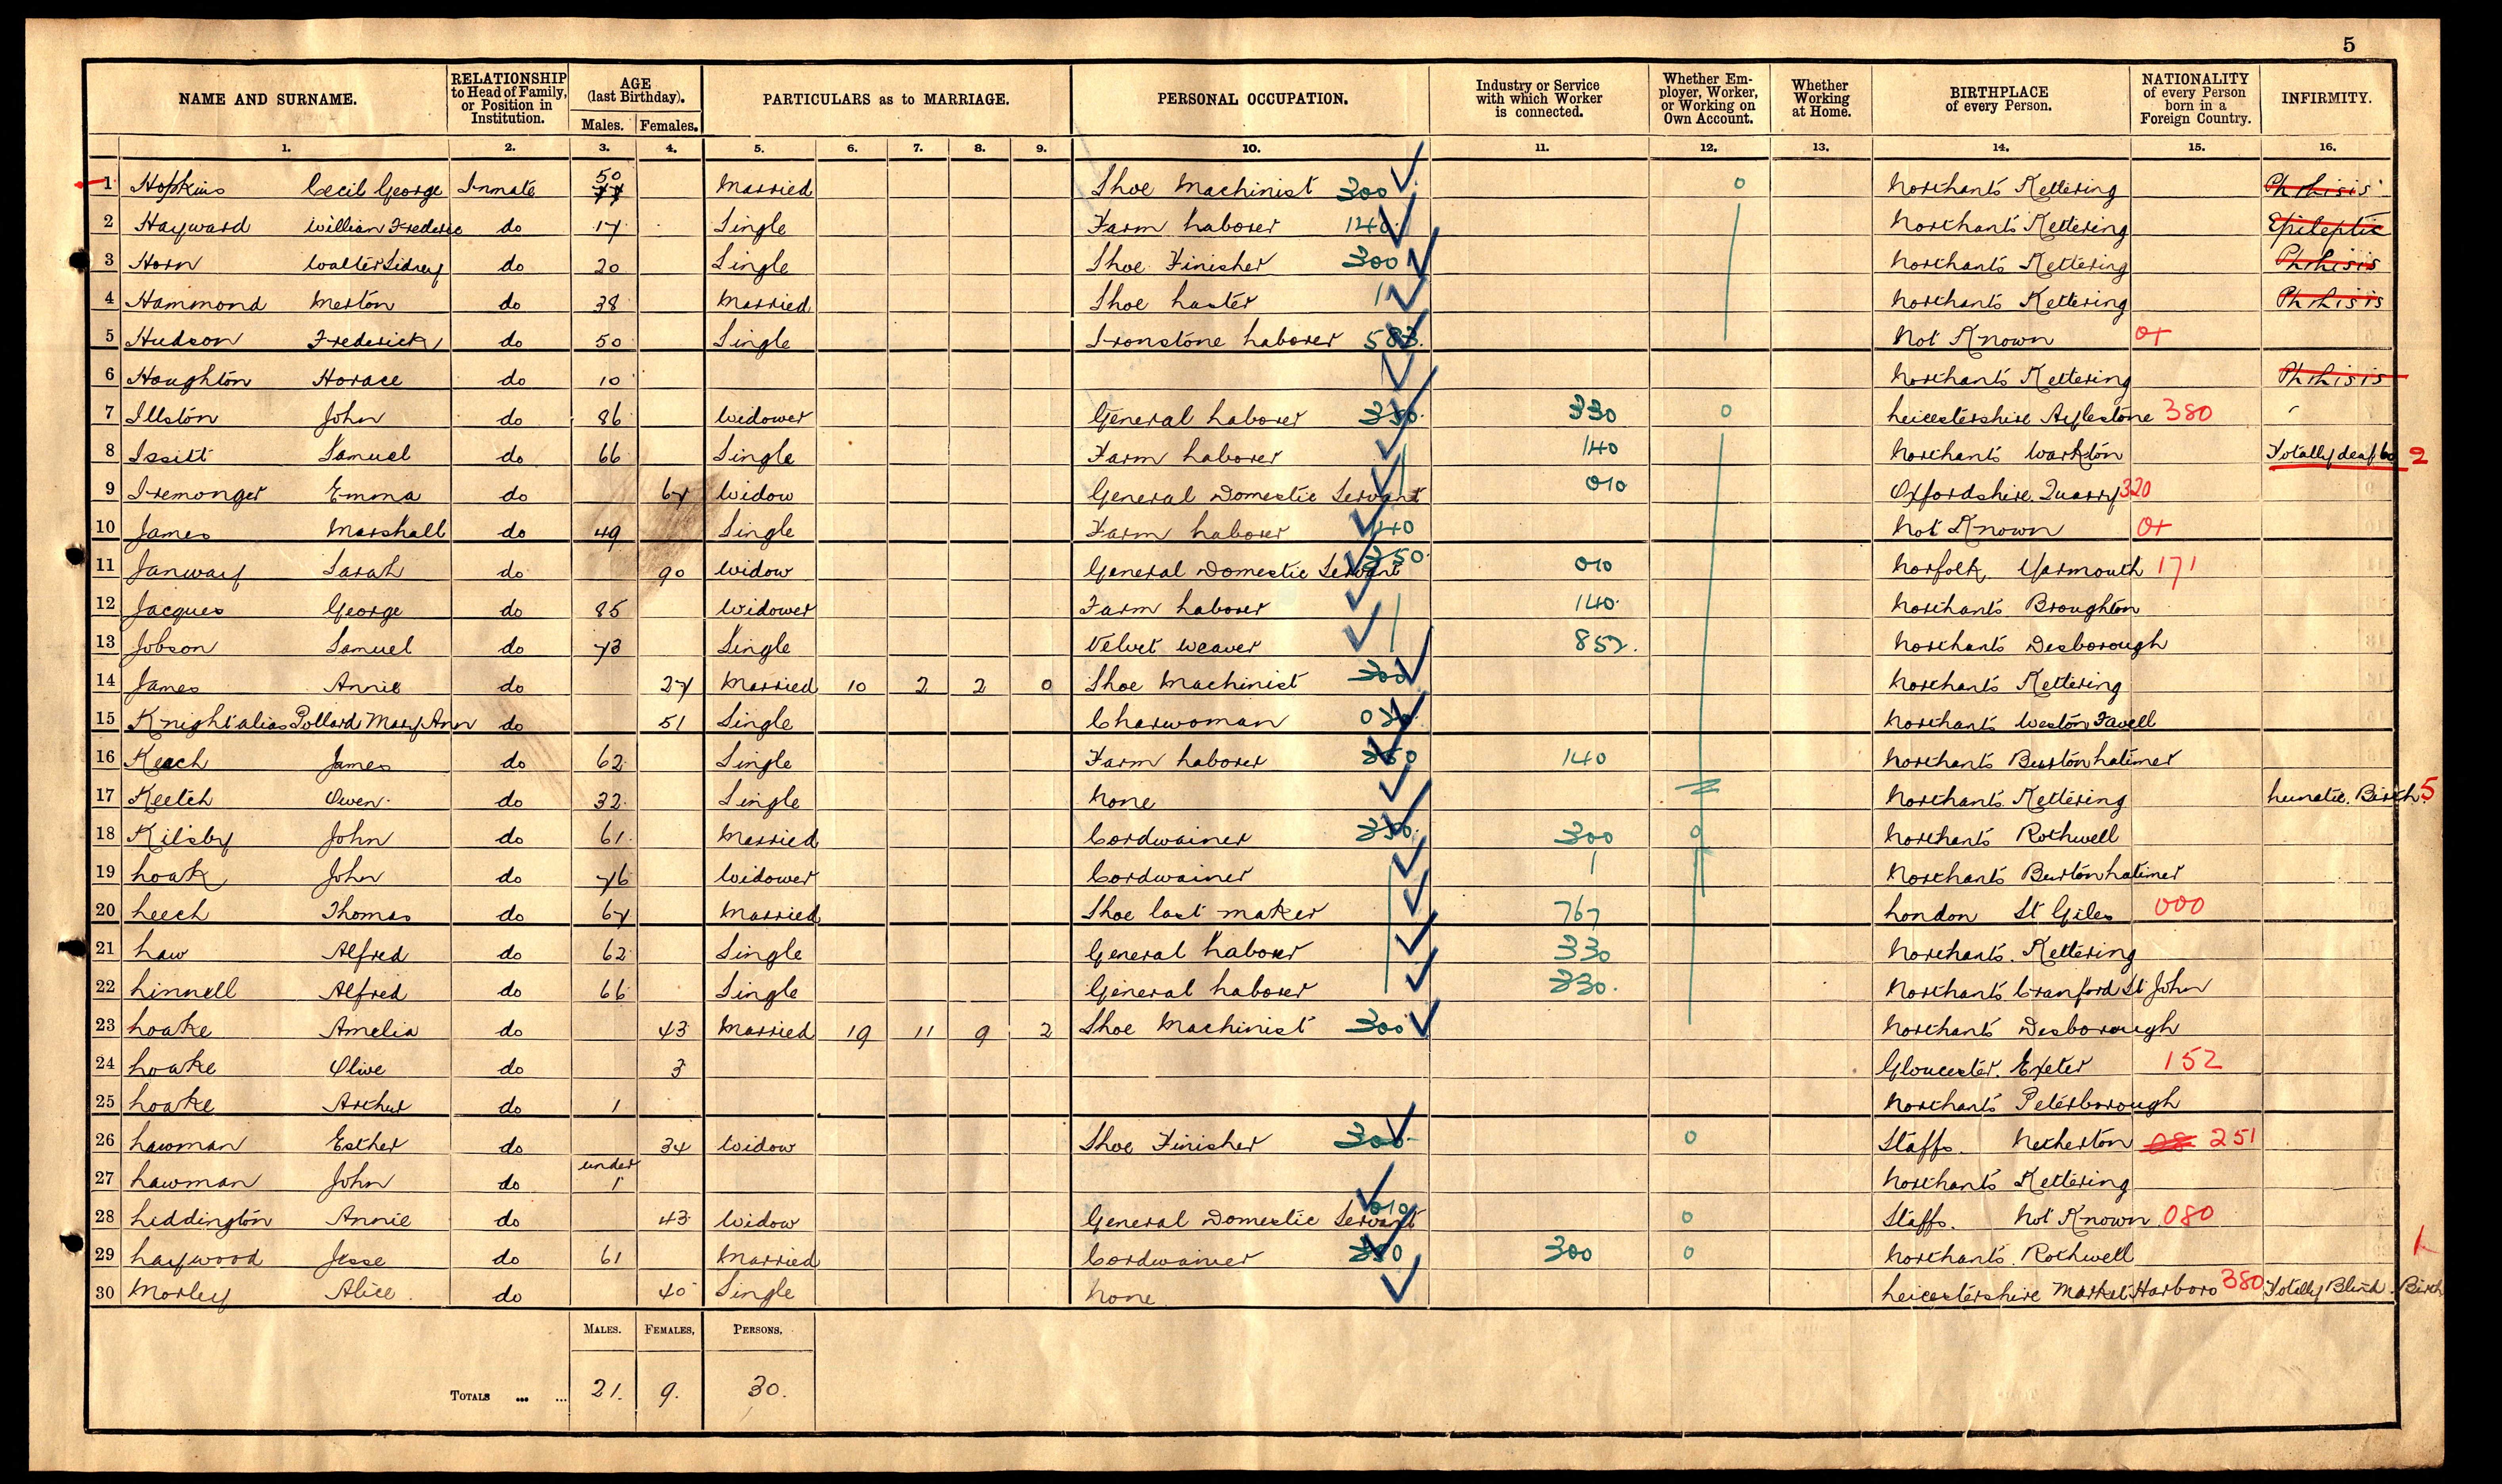 5
NAME AND SURNAME. RELATIONSHIP to Head of Family, or Position in Institution. AGE (last Birthday). Males. Females. PARTICULARS as to MARRIAGE. PERSONAL OCCUPATION. Industry or Service with which Worker is connected. Whether Employer, Worker, or Working on Own Account. Whether Working at Home. BIRTHPLACE of every Person. NATIONALITY of every Person born in a Foreign Country. INFIRMITY.
1. 2. 3. 4. 5. 6. 7. 8. 9. 10. 11. 12. 13. 14. 15. 16.
1 Hopkins Cecil George Inmate 50 Married Shoe Machinist 300 0 Northants Kettering Phthisis
2 Hayward William Frederic do 17 Single Farm Laborer 140 Northants Kettering Epileptic
3 Horn Walter Sidney do 20 Single Shoe Finisher 300 Northants Kettering Phthisis
4 Hammond Merton do 38 Married Shoe Laster Northants Kettering Phthisis
5 Hudson Frederick do 50 Single Ironstone Laborer 583 Not Known
6 Houghton Horace do 10 Northants Kettering Phthisis
7 Illston John do 86 Widower General Laborer 350 330 0 Leicestershire Aylestone 380
8 Issitt Samuel do 66 Single Farm Laborer 140 Northants Warkton Totally deaf 60 2
9 Iremonger Emma do 67 Widow General Domestic Servant 010 Oxfordshire Quarry 320
10 James Marshall do 49 Single Farm Laborer 140 Not Known
11 Janway Sarah do 90 Widow General Domestic Servant 350 010 Norfolk Yarmouth 171
12 Jacques George do 85 Widower Farm Laborer 140 Northants Broughton
13 Jobson Samuel do 73 Single Velvet Weaver 852 Northants Desborough
14 James Annie do 27 Married 10 2 2 0 Shoe Machinist 300 Northants Kettering
15 Knight alias Pollard Mary Ann do 51 Single Charwoman Northants Weston Favell
16 Keach James do 62 Single Farm Laborer 350 140 Northants Burton Latimer
17 Keetch Owen do 32 Single None Northants Kettering Lunatic. Birth. 5
18 Kilsby John do 61 Married Cordwainer 350 300 0 Northants Rothwell
19 Loak John do 76 Widower Cordwainer Northants Burton Latimer
20 Leech Thomas do 67 Married Shoe last maker 767 London St Giles 000
21 Law Alfred do 62 Single General Laborer 330 Northants Kettering
22 Linnell Alfred do 66 Single General Laborer 330 Northants Cranford St John
23 Loake Amelia do 43 Married 19 11 9 2 Shoe Machinist 300 Northants Desborough
24 Loake Olive do 3 Gloucester. Exeter 152
25 Loake Arthur do 1 Northants Peterborough
26 Lawman Esther do 34 Widow Shoe Finisher 300 0 Staffs. Netherton 08 251
27 Lawman John do under 1 Northants Kettering
28 Liddington Annie do 43 Widow General Domestic Servant 010 0 Staffs. Not Known 080
29 Laywood Jesse do 61 Married Cordwainer 350 300 0 Northants Rothwell 1
30 Morley Alice do 40 Single None Leicestershire Market Harboro 380 Totally Blind Birth
MALES. FEMALES, PERSONS,
TOTALS ... ... 21. 9. 30.